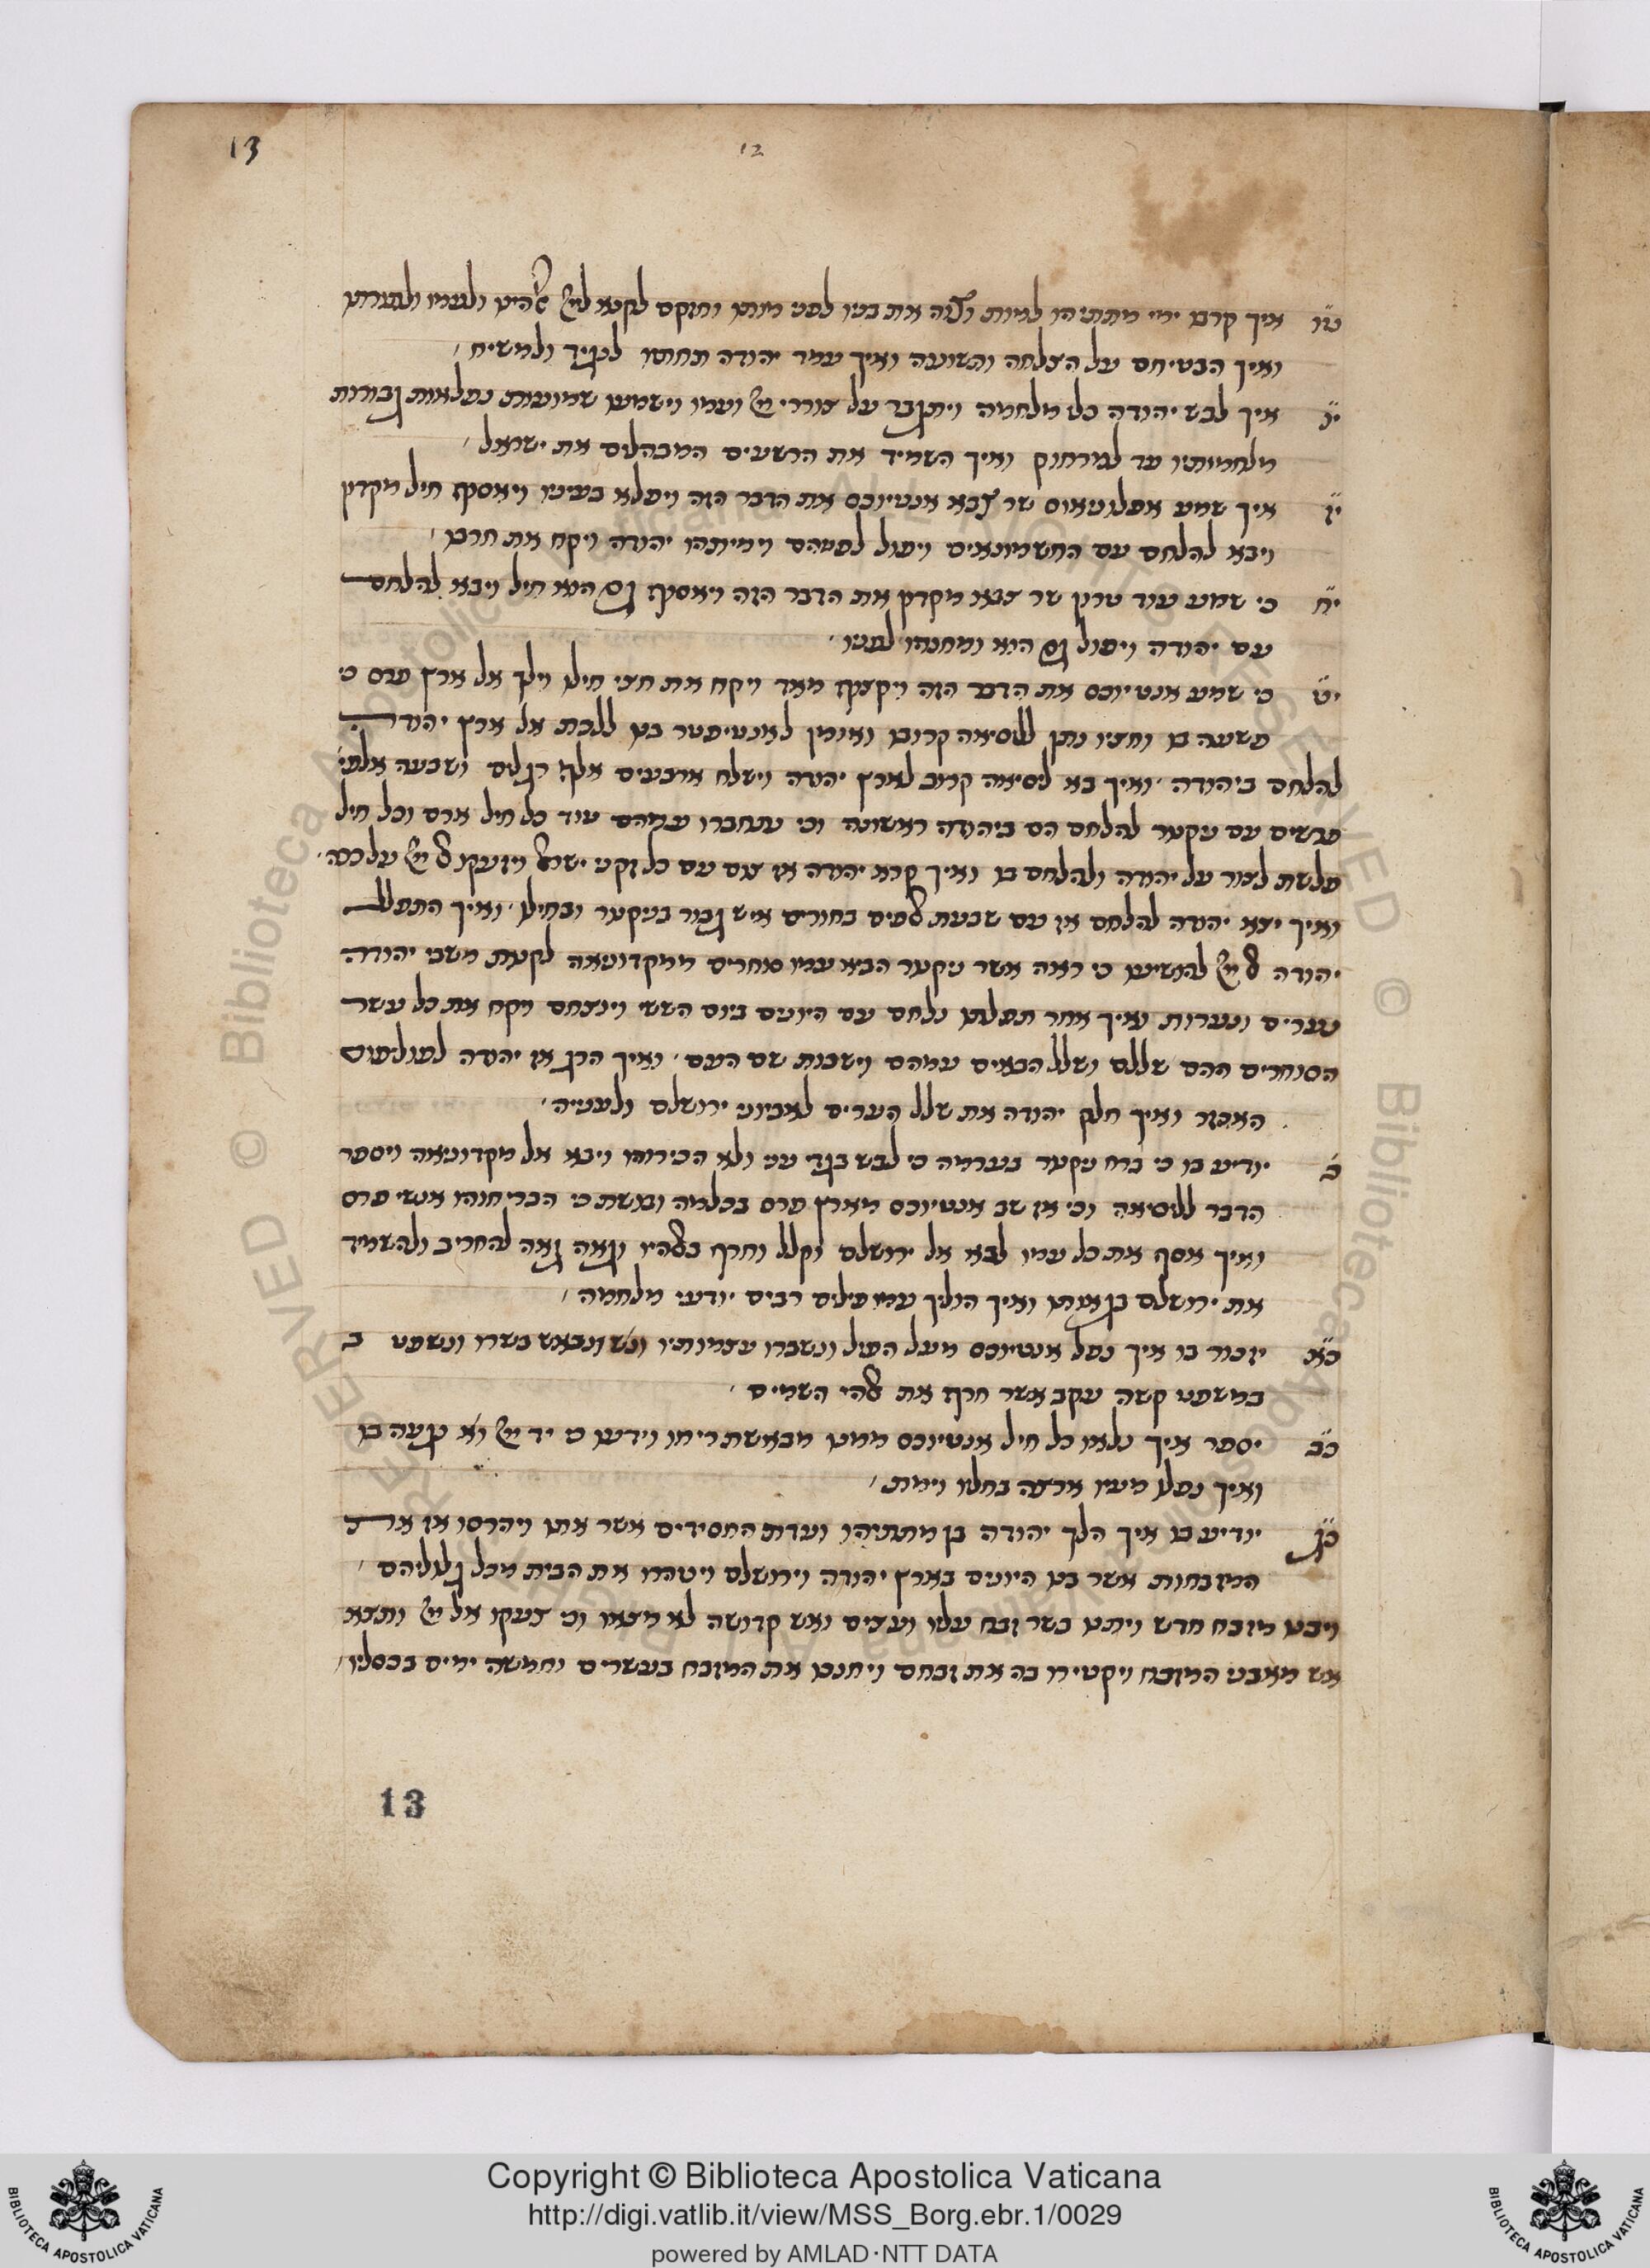 13
12
ט״ו איך קרבו ימי מתתיהו למות ויצוה את בניו לפני מותו ויחזקם לקנא ליי׳ אלהיו ולעמו ולתורתו
ואיך הבטיחם על הצלחה ותשועה ואיך עמד יהודה תחתיו לנגיד ולמשיח
י״ו איך לבש יהודה כלי מלחמה ויתגבר על צוררי יי׳ ועמו וישמעו שמועות נפלאות גבורות
מלחמותיו עד למרחוק ואיך השמיד את הרשעים המבהלים את ישראל
י״ז איך שמע אפלוניאוס שר צבא אנטיוכס את הדבר הזה ויפלא בעיניו ויאסוף חיל מקדון
ויבא להלחם עם החשמונאים ויפול לפניהם וימיתהו יהודה ויקח את חרבו
י״ח כי שמע עוד סרון שר צבא מקדון את הדבר הזה ויאסוף גם הוא חיל ויבא להלחם
עם יהודה ויפול גם הוא ומחנהו לפניו
י״ט כי שמע אנטיוכס את הדבר הזה ויקצוף מאד ויקח את חצי חילו וילך אל ארץ פרס כי
פשעה בו וחציו נתן לליסיאה קרובו ואומן לאנטיפטר בנו ללכת אל ארץ יהודה
להלחם ביהודה ואיך בא ליסיאה קרוב לארץ יהודה וישלח ארבעים אלף רגלים ושבעה אלפי
פרשים עם ניקנור להלחם הם ביהודה ראשונה וכי נתחברו עמהם עוד כל חיל ארם וכל חיל
פלשת לצור על יהודה ולהלחם בו ואיך קרא יהודה אז צום עם כל זקני ישראל ויזעקו אל יי׳ על ככה
ואיך יצא יהודה להלחם אז עם שבעת אלפים בחורים איש גבור בניקנור ובחילו ואיך התפלל
יהודה אל יי׳ להושיעו כי ראה אשר ניקנור הביא עמו סוחרים ממקדוניאה לקנות משבי יהודה
נערים ונערות ואיך אחר תפלתו נלחם עם היונים ביום הששי וינצחם ויקח את כל עשר
הסוחרים ההם שללם ושלל הבאים עמהם וישבות שם העם ואיך הרג אז יהודה לפוליפוס
האכזר ואיך חלק יהודה את שלל הערים לאביוני ירושלם ולענייה
כ׳ יודיע בו כי ברח ניקנור בערמה כי לבש בגדי עני ולא הכירוהו ויבא אל מקדוניאה ויספר
הדבר לליסיאה וכי אז שב אנטיוכס מארץ פרס בכלמה ובושת כי הבריחוהו אנשי פרס
ואיך אסף את כל עמו לבא אל ירושלם ויקלל וחרף באלהיו וגאה גאה להחריב ולהשמיד
את ירושלם בגאותו ואיך הוליך עמו פילים רבים יודעי מלחמה
כ״א יזכור בו איך נפל אנטיוכס מעל הפיל ונשברו עצמותיו ונבאש בשרו ונשפט ב
במשפט קשה עקב אשר חרף את אלהי השמים
כ״ב יספר איך נלאו כל חיל אנטיוכס ממנו מבאשת ריחו וידעו כי יד יי׳ היא נגעה בו
ואיך נפלו מעיו ארצה בחליו וימת
כ״ג יודיע בו איך הלך יהודה בן מתתיהו ועדת החסידים אשר אתו ויהרסו אז את
המזבחות אשר בנו היונים בארץ יהודה וירושלם ויטהרו את הבית מכל גלוליהם
ויבנו מזבח חדש ויתנו בשר זבח עליו ועצים ואש קדושה לא מצאו וכי צעקו אל יי׳ ותצא
אש מאבני המזבח ויקטירו בה את זבחם ויחנכו את המזבח בעשרים וחמשה ימים בכסליו
13
Copyright © Biblioteca Apostolica Vaticana
http://digi.vatlib.it/view/MSS_Borg.ebr.1/0029
powered by AMLAD·NTT DATA